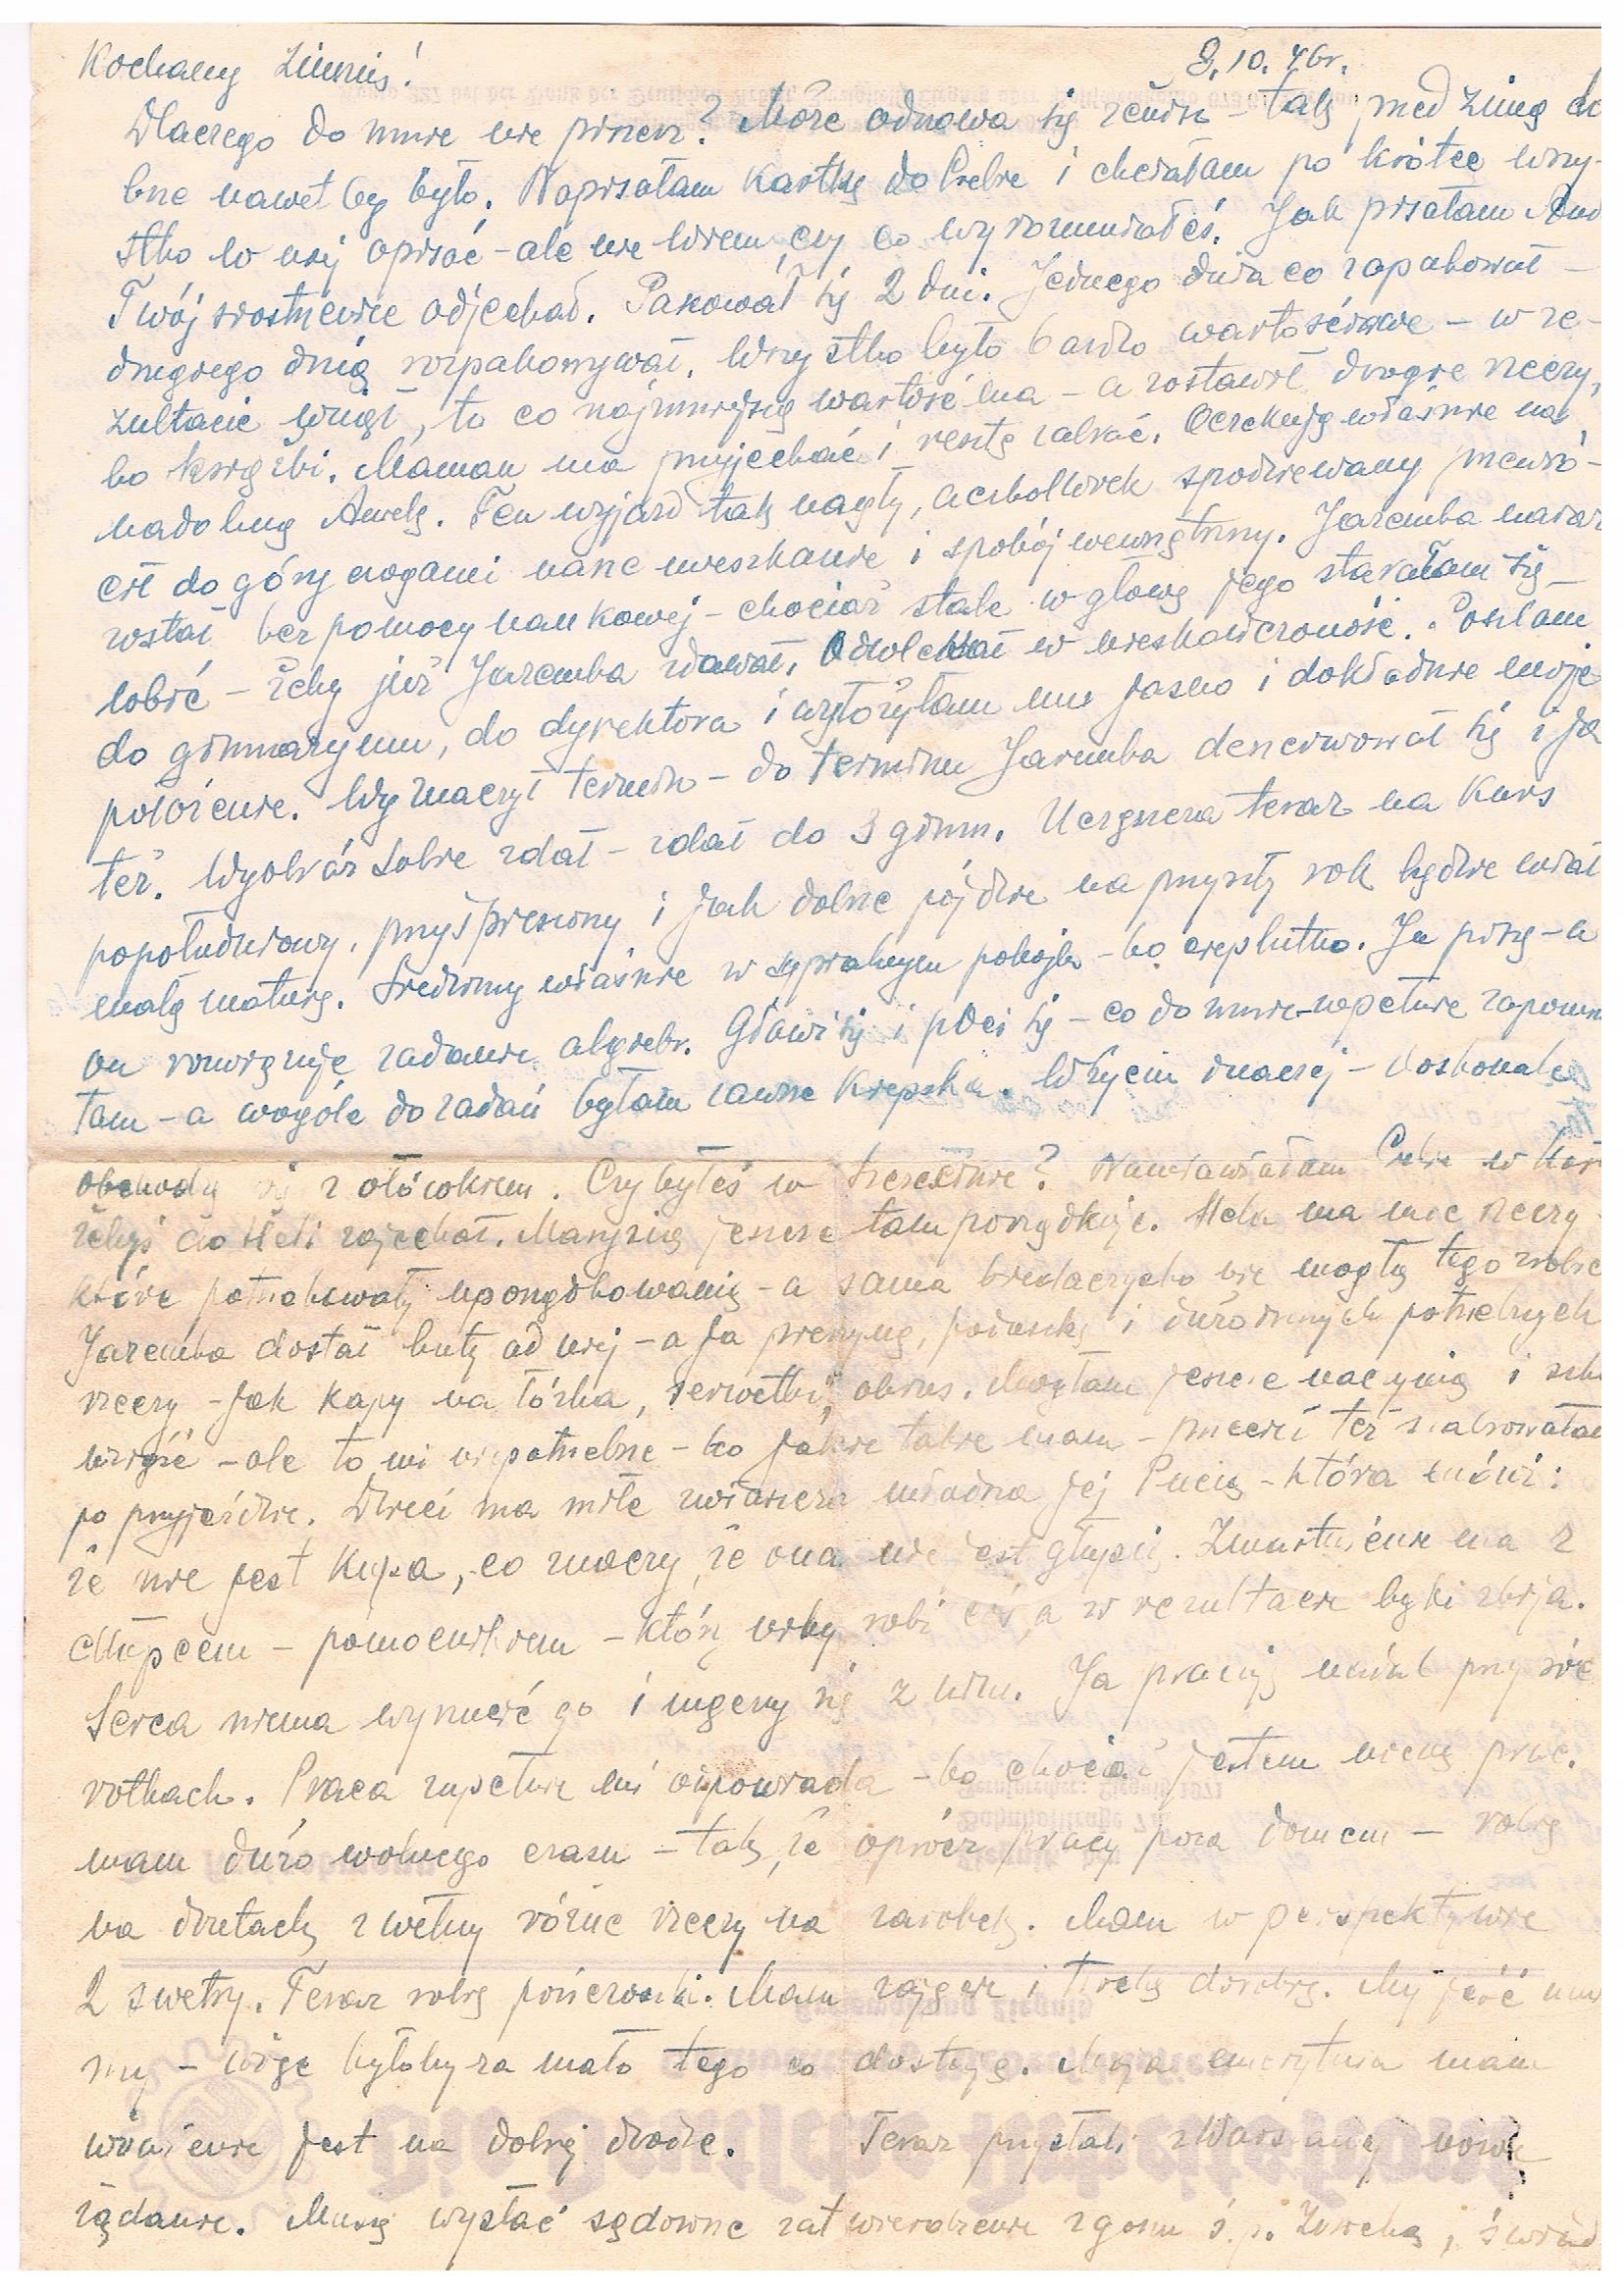 Kochany Zimmiś! 8.10.46r.
Dlaczego do mnie nie piszesz? Może odnowa się żenisz - tak, przed zimą do
bne nawet by było. Napisałam kartkę do Ciebie i chciałam po krótce wszy-
stko w niej opisać - ale nie wiem, czy co wyrozumiałeś. Jak pisałam
Twój siostrzeniec odjechał. Pakował się 2 dni. Jednego dnia co zapakował -
drugiego dnia rozpakowywał. Wszystko było bardzo wartościowe - w re-
zultacie wziął, to co najmniejszą wartość ma - a zostawił drogie rzeczy,
bo książki. Maman ma przyjechać i resztę zabrać. Oczekuję właśnie na
nadobną Anielę. Ten wyjazd tak nagły, aczkolwiek spodziewany przewró-
cił do góry nogami nasze mieszkanie i spokój wewnętrzny. Jaremba
został bez pomocy naukowej - chociaż stale w głowę jego starałam się
wbić - żeby już Jaremba zdawał. Odwlekał w nieskończoność. Poszłam
do gimnazjum, do dyrektora i wyłożyłam mu jasno i dokładnie moje
położenie. Wyznaczył termin - do terminu Jaremba denerwował się i ja
też. Wyobraź sobie zdał - zdał do 3 gimn. Uczęszcza teraz na kurs
popołudniowy, przyśpieszony i jak dobrze pójdzie na przyszły rok będzie miał
małą maturę. Siedzimy właśnie w sypialnym pokoju - bo cieplutko. Ja piszę - a
on rozwiązuje zadanie algebr. Głowi się i poci się - co do mnie zupełnie zapomnia
łam - a wogóle do zadań byłam zawsze kiepska. W życiu inaczej - doskonale
obchodzę się z ołówkiem. Czy byłeś w Szczecinie? Namawiałam Ciebie w
żebyś do Heli zajechał. Marysia jeszcze tam porządkuje. Hela ma moc rzeczy -
które potrzebowały uporządkowania - a sama biedaczysko nie mogła tego zrobić
Jaremba dostał buty od niej - a ja pierzynę, poduszkę i dużo innych potrzebnych
rzeczy - jak kapy na łóżka, serwetki, obrus. Mogłam jeszcze naczynia i
wziąść - ale to mi niepotrzebne - bo jakie takie mam - przecież też szabrowałam
po przyjeździe. Dzieci ma miłe zwłaszcza udadna jej Pucia - która mówi:
że nie jest kupsa, co znaczy, że ona nie jest głupia. Zmartwienie ma z
chłopcem - pomocnikiem - który niby robi coś, a w rezultacie byki zbija.
Serca niema wyrzucić go i męczy się z nim. Ja pracuję nadal przy sie
rotkach. Praca zupełnie mi odpowiada - bo chociaż jestem prac.
mam dużo wolnego czasu - tak, że oprócz pracy poza domem - robię
na drutach z wełny różne rzeczy na zarobek. Mam w perspektywie
2 swetry. Teraz robię pończoszki. Mam zajęcie i trochę dorobię. My jeść mu
simy - więc byłoby za mało tego co dostaję. Moja emerytura mam
wrażenie jest na dobrej drodze. Teraz przysłali z Warszawy nowe
żądanie. Muszę wysłać sądowne zatwierdzenie zgonu ś.p. , świad